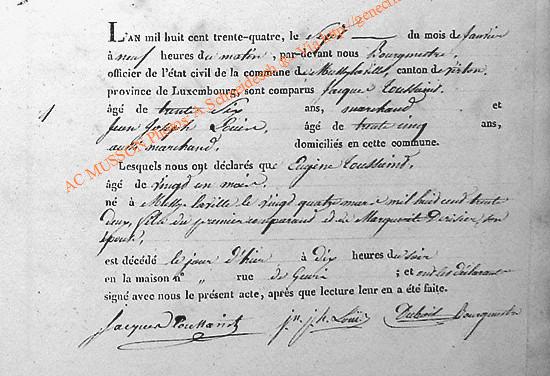 L'AN mil huit cent trente-quatre, le Sept du mois de fanvier
à neuf heures du matin, par-devant nous Bourgmestre,
officier de l'état civil de la commune de Mussy la ville, canton de Virton,
province de Luxembourg, sont comparus Jacque Toussaint
âgé de trente Six ans, marchand et
Jean Joseph Louis, âgé de trente cinq ans,
aussi marchand domiciliés en cette commune.
Lesquels nous ont déclarés que Eugène Toussaint
âgé de vingd un mois
né à Mussy la ville le vingd quatre mars mil huid cend trente
deux, fils du premier comparand et de Marguerit son
épouse,
est décédé le jour d'hier à dix heures du soir
en la maison n° „ rue de ; et ont les déclarant
signé avec nous le présent acte, après que lecture leur en a été faite.
Jacques Toussaint jn. jh. Louis Dubois Bourgmestre
AC MUSSON Photos A Schneidesch & Via http://genechti